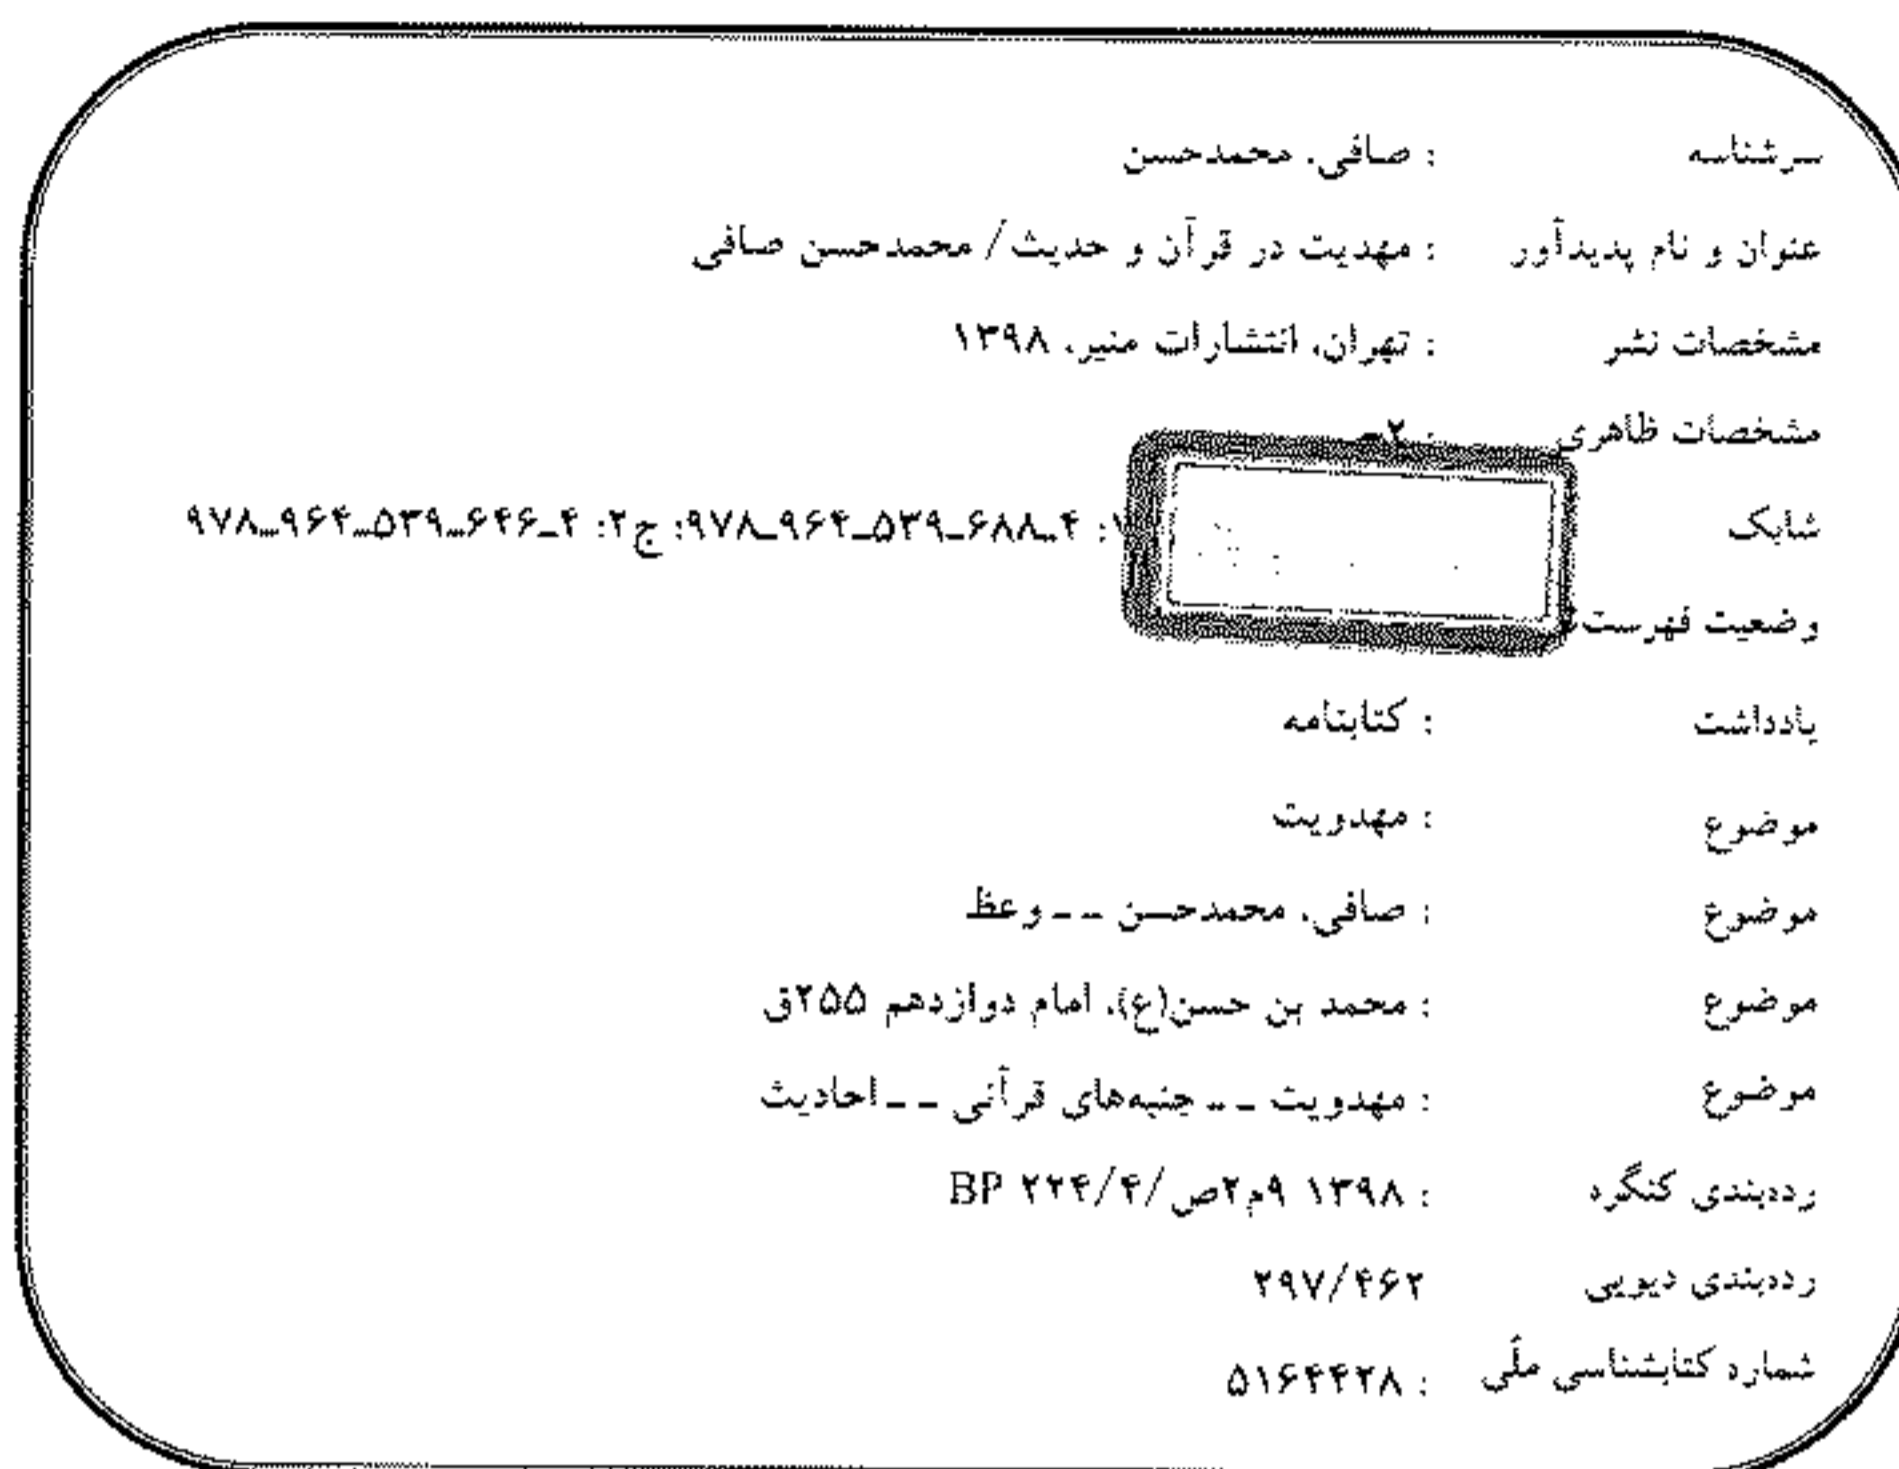 سرشناسه : صافی، محمدحسن
عنوان و نام پدیدآور : مهدیت در قرآن و حدیث/ محمدحسن صافی
مشخصات نشر : تهران، انتشارات منیر، ۱۳۹۸
مشخصات ظاهری : ۲ج
شابک ۱: ۴ـ۶۸۸ـ۵۳۹ـ۹۶۴ـ۹۷۸: ج۲: ۴ـ۶۴۶ـ۵۳۹ـ۹۶۴ـ۹۷۸
وضعیت فهرست
یادداشت : کتابنامه
موضوع : مهدویت
موضوع : صافی، محمدحسن ـ ـ وعظ
موضوع : محمد بن حسن(ع)، امام دوازدهم ۲۵۵ق
موضوع : مهدویت ـ ـ جنبه‌های قرآنی ـ ـ احادیث
رده‌بندی کنگره : ۱۳۹۸ ۹م۲ص/۴/۲۲۴ BP
رده‌بندی دیویی ۲۹۷/۴۶۲
شماره کتابشناسی ملّی : ۵۱۶۴۴۲۸